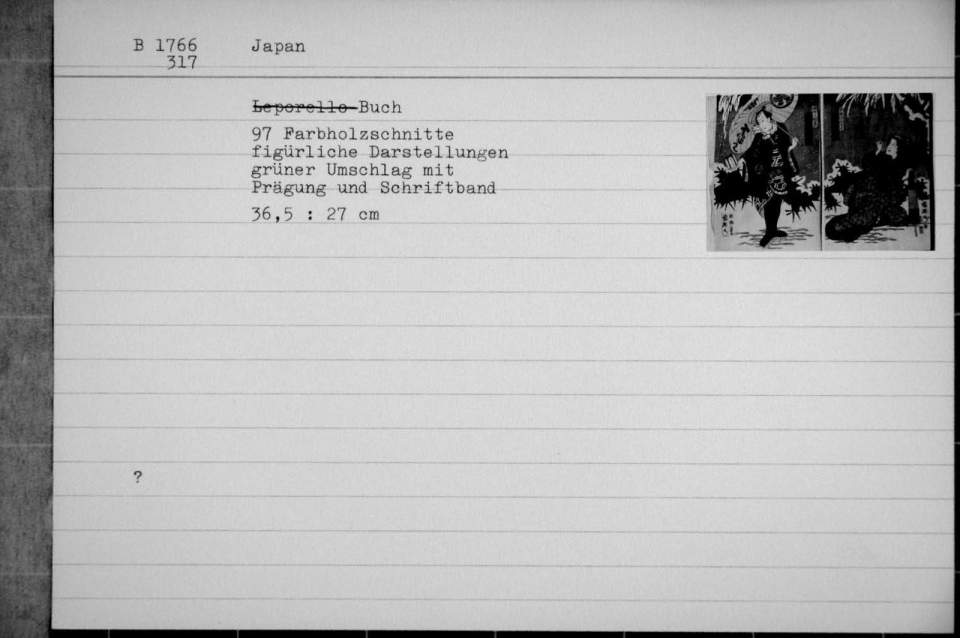 B 1766 Japan
317
Leporello Buch
97 Farbholzschnitte
figürliche Darstellungen
grüner Umschlag mit
Prägung und Schriftband
36,5 : 27 cm
?